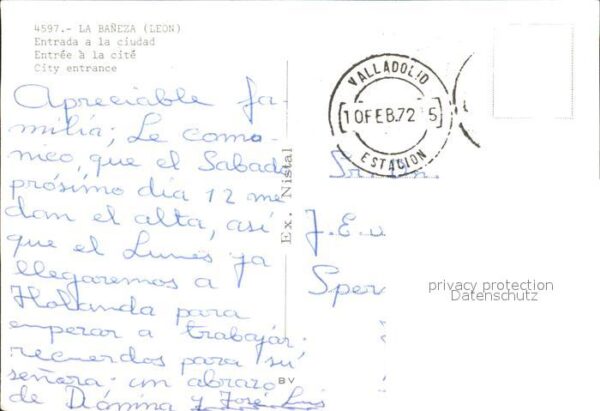 4597.- LA BAÑEZA (LEON)
Entrada a la ciudad
Entrée à la cité
City entrance
Apreciable fa-
milia; Le como-
nico, que el Sabado
prósimo dia 12 me
dan el alta, así
que el Lunes ya
llegaremos a
Holanda para
emperar a trabajar;
recuerdos para su
señora; un abrazo
de Diónina y José Luis
Ex. Nistal
BV
VALLADOLID
10FEB.72 5
ESTACION
J.E.
Sper
privacy protection
Datenschutz